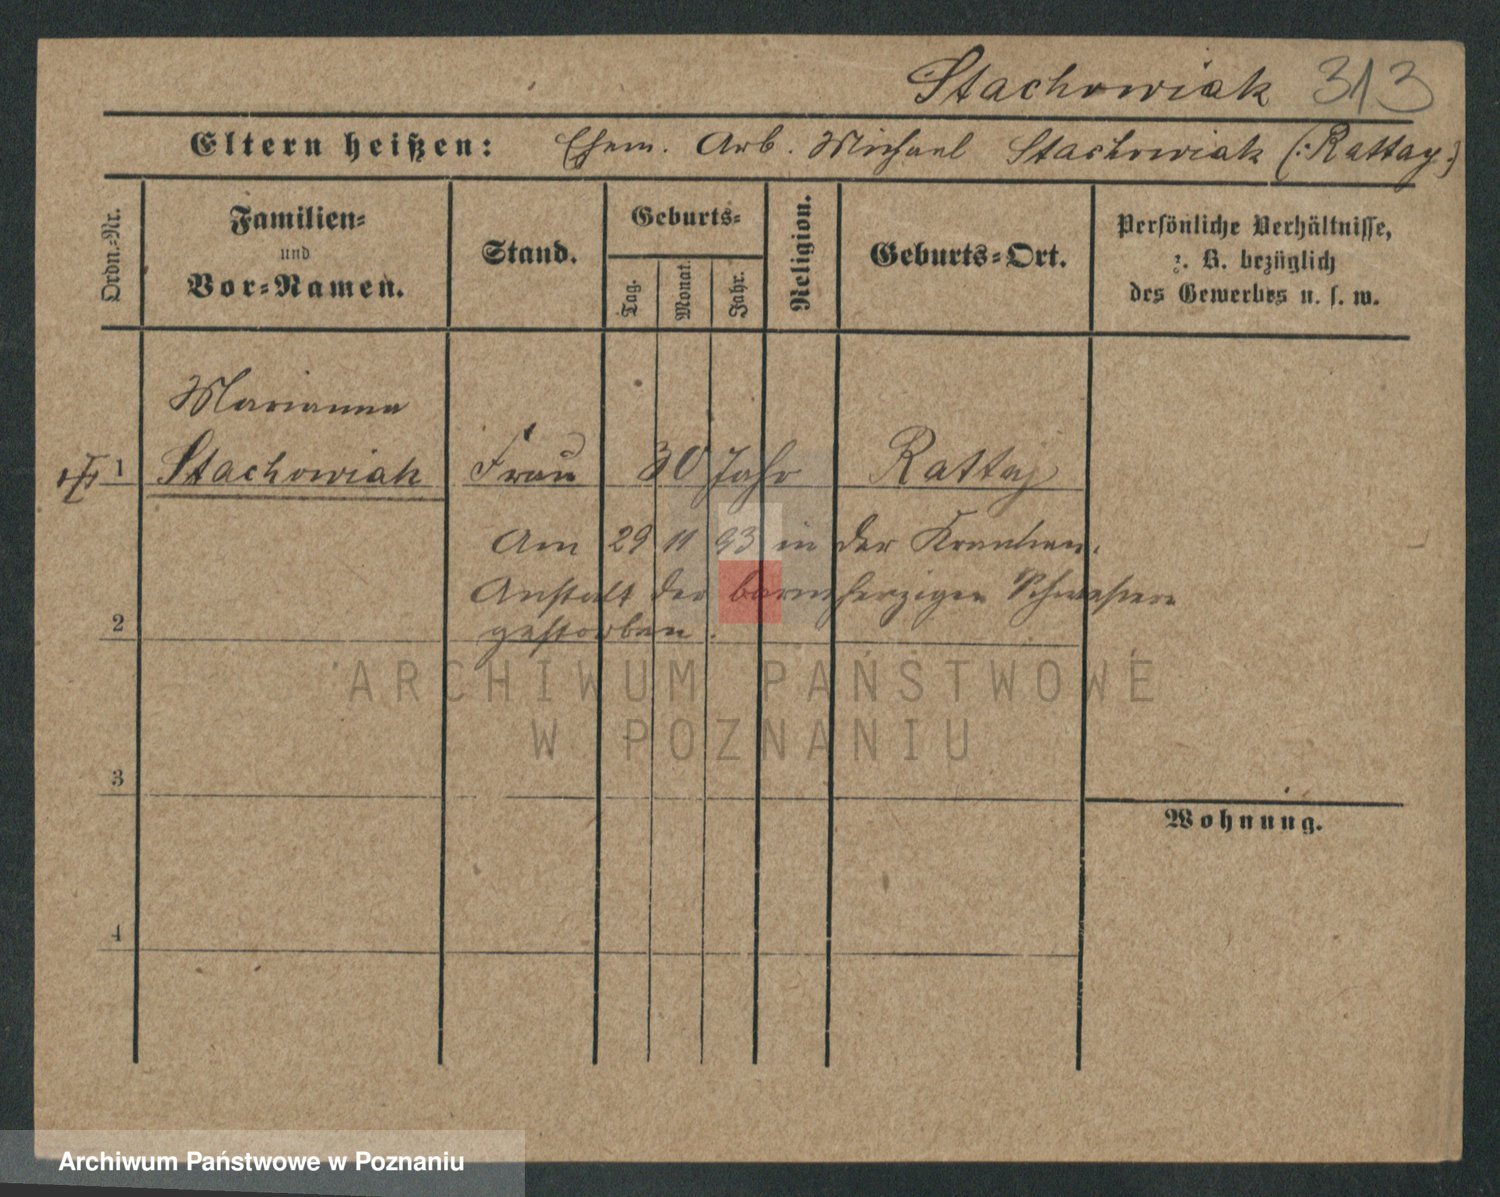 Stachowiak 313
Eltern heißen: Ehem. Arb. Michael Stachowiak (:Rattay:)
Ordn.-Nr.
Familien-
und
Vor-Namen.
Stand.
Geburts-
Tag.
Monat.
Jahr.
Religion.
Geburts-Ort.
Persönliche Verhältnisse,
z. B. bezüglich
des Gewerbes u. s. w.
Marianna
1 Stachowiak Frau 30 Jahr Rattay
Am 29 11 93 in der Kranken.
Anstalt der barmherzigen Schwestern
2 gestorben.
ARCHIWUM PAŃSTWOWE
W POZNANIU
3
Wohnung.
4
Archiwum Państwowe w Poznaniu